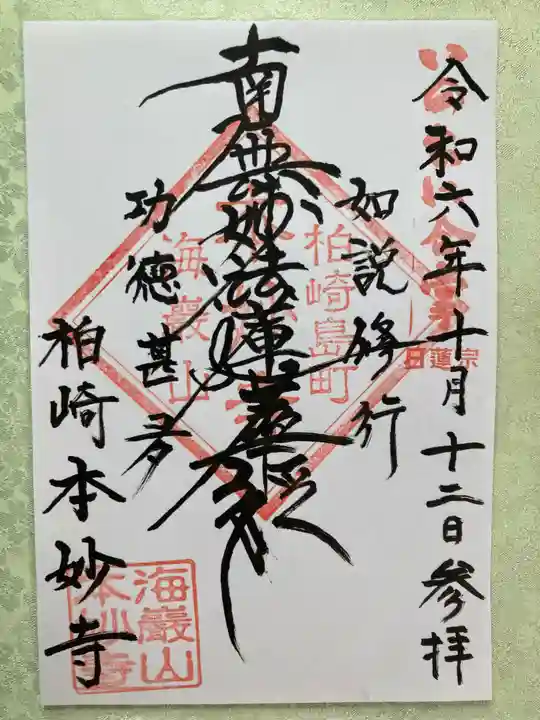 令和六年十月十二日参拝
日蓮宗
如説修行
柏崎島町
南無妙法蓮華経
海巖山
功徳甚多
柏崎本妙寺
海巖山
本妙寺